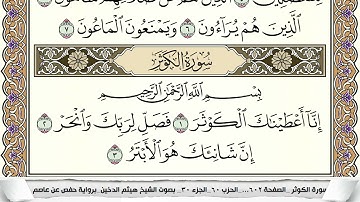 الَّذِينَ هُمْ يُرَآءُونَ ٦ وَيَمْنَعُونَ الْمَاعُونَ ٧
سُورَةُ الكَوْثَرِ
بِسْمِ اللَّهِ الرَّحْمَٰنِ الرَّحِيمِ
إِنَّا أَعْطَيْنَاكَ الْكَوْثَرَ ١ فَصَلِّ لِرَبِّكَ وَانْحَرْ ٢
إِنَّ شَانِئَكَ هُوَ الْأَبْتَرُ ٣
سورة الكوثر _الصفحة ٦٠٢_... الحزب ٦٠_الجزء ٣٠_ بصوت الشيخ هيثم الدخين _برواية حفص عن عاصم